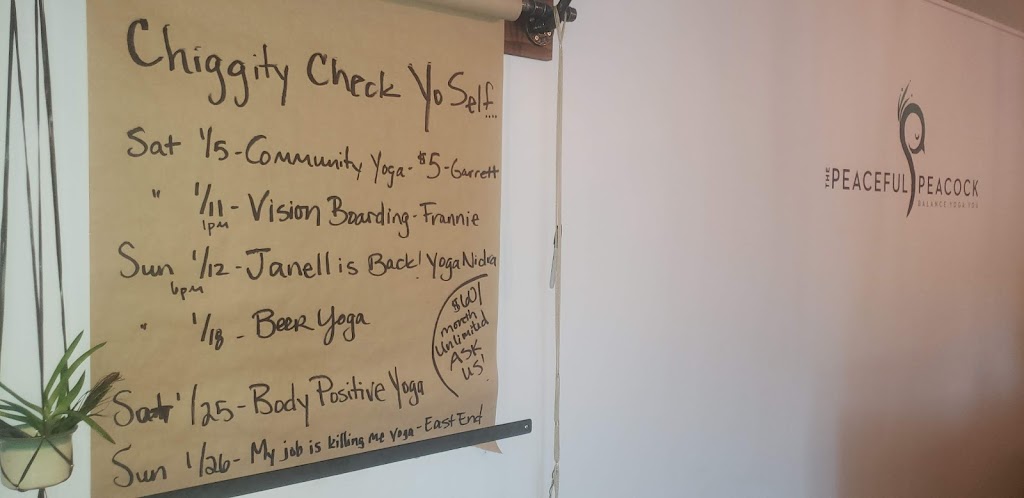 Chiggity Check Yo Self....
Sat 1/5 - Community Yoga - $5 - Garrett
" 1/11 - Vision Boarding - Frannie
1pm
Sun 1/12 - Janell is Back! Yoga Nidra
6pm
" 1/18 - Beer Yoga
$60/
month
Unlimited
ASK
US!
Sat 1/25 - Body Positive Yoga
Sun 1/26 - My job is killing me Yoga - East End
THE PEACEFUL PEACOCK
BALANCE.YOGA.YOU